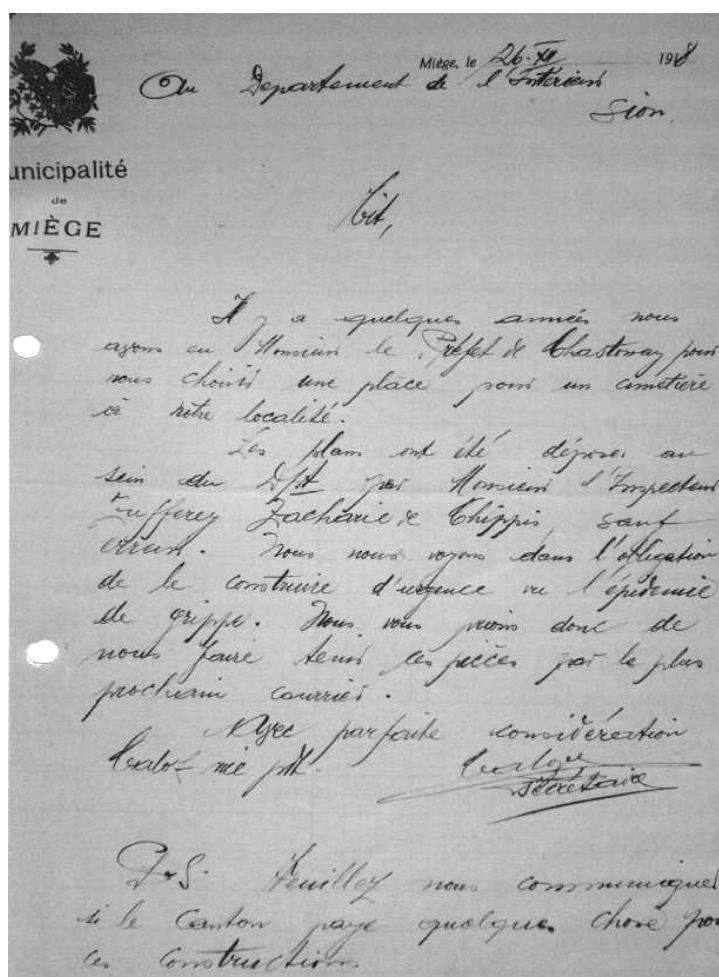 Miège, le 26. XII 1918
Au Departement de l'Intérieur
Sion.
unicipalité
de
MIÈGE
Tit,
Il y a quelques années nous
avons eu Monsieur le Préfet de Chastonay pour
nous choisir une place pour un cimetière
à notre localité.
Les plans ont été déposer au
sein du Dpt par Monsieur l'Inspecteur
Zufferey Zacharie de Chippis, sauf
erreur. Nous nous voyons dans l'obligation
de le construire d'urgence vu l'épidemie
de grippe. Nous vous prions donc de
nous faire tenir ces pièces par le plus
prochain courrier.
Avec parfaite considération
Caloz pdt.
Caloz
secrétaire
P.S. Veuillez nous communiquer
si le Canton paye quelques chose pou
ces constructions